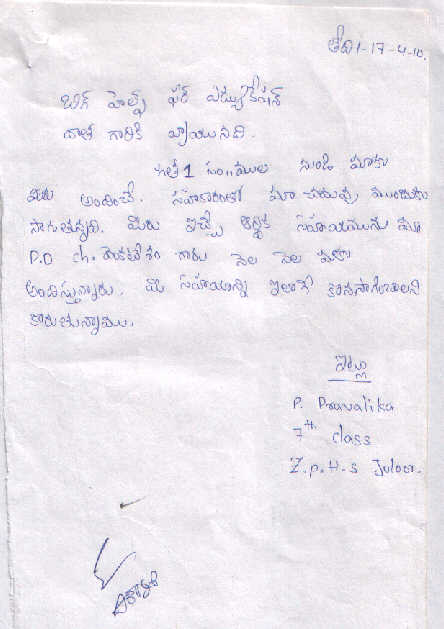 తేది 1-17-4-10.
బిగ్ హెల్ప్ ఫర్ ఎడ్యుకేషన్
దాత గారికి వ్రాయునది.
గత 1 సం॥ముల నుండి మాకు
మీరు అందించే. సహకారంతో మా చదువు ముందుకు
సాగుతున్నది. మీరు ఇచ్చే ఆర్థిక సహాయమును మా
P.D ch. వెంకటేశం గారు నెల నెల మాకు
అందిస్తున్నారు. మీ సహాయాన్ని ఇలాగే కొనసాగించాలని
కోరుతున్నాము.
ఇట్లు
P. Pravalika
7th class
Z.p.H.s Juloor.